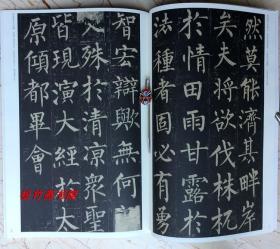 然莫能濟其畔岸
矣夫將欲伐株杌
於情田雨甘露於
法種者固必有勇
智宏辯歟無何
文殊於清涼眾聖
皆現演大經於太
原傾都畢會